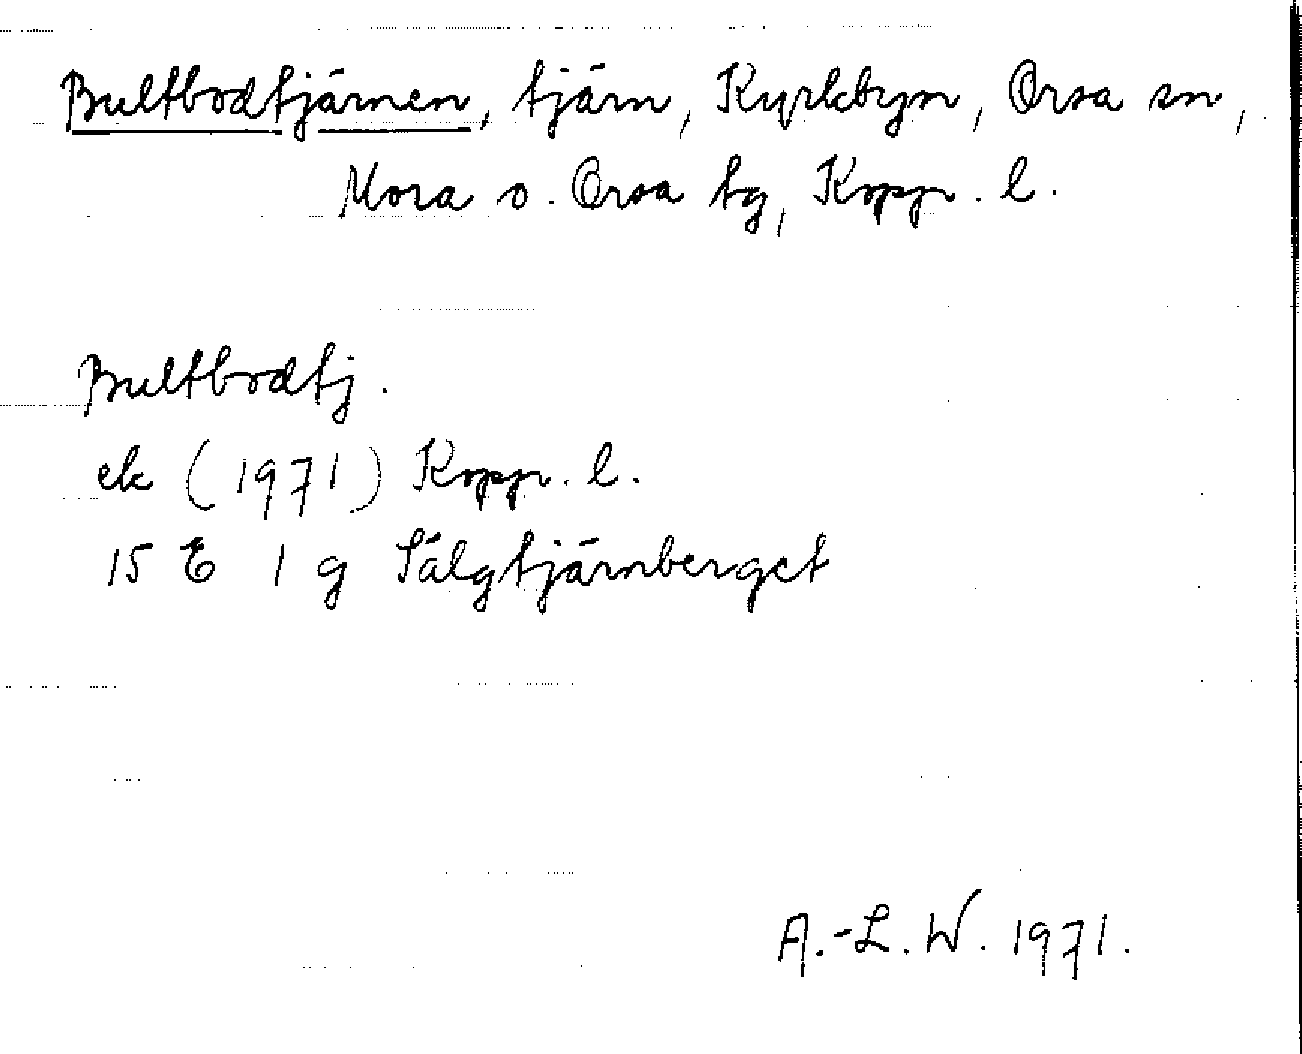 Bultbodtjärnen, tjärn, Kyrkbyn, Orsa sn,
Mora o. Orsa tg, Kopp. l.
Bultbodtj.
ek (1971) Kopp. l.
15 E 1 g Sälgtjärnberget
A.-L. W. 1971.